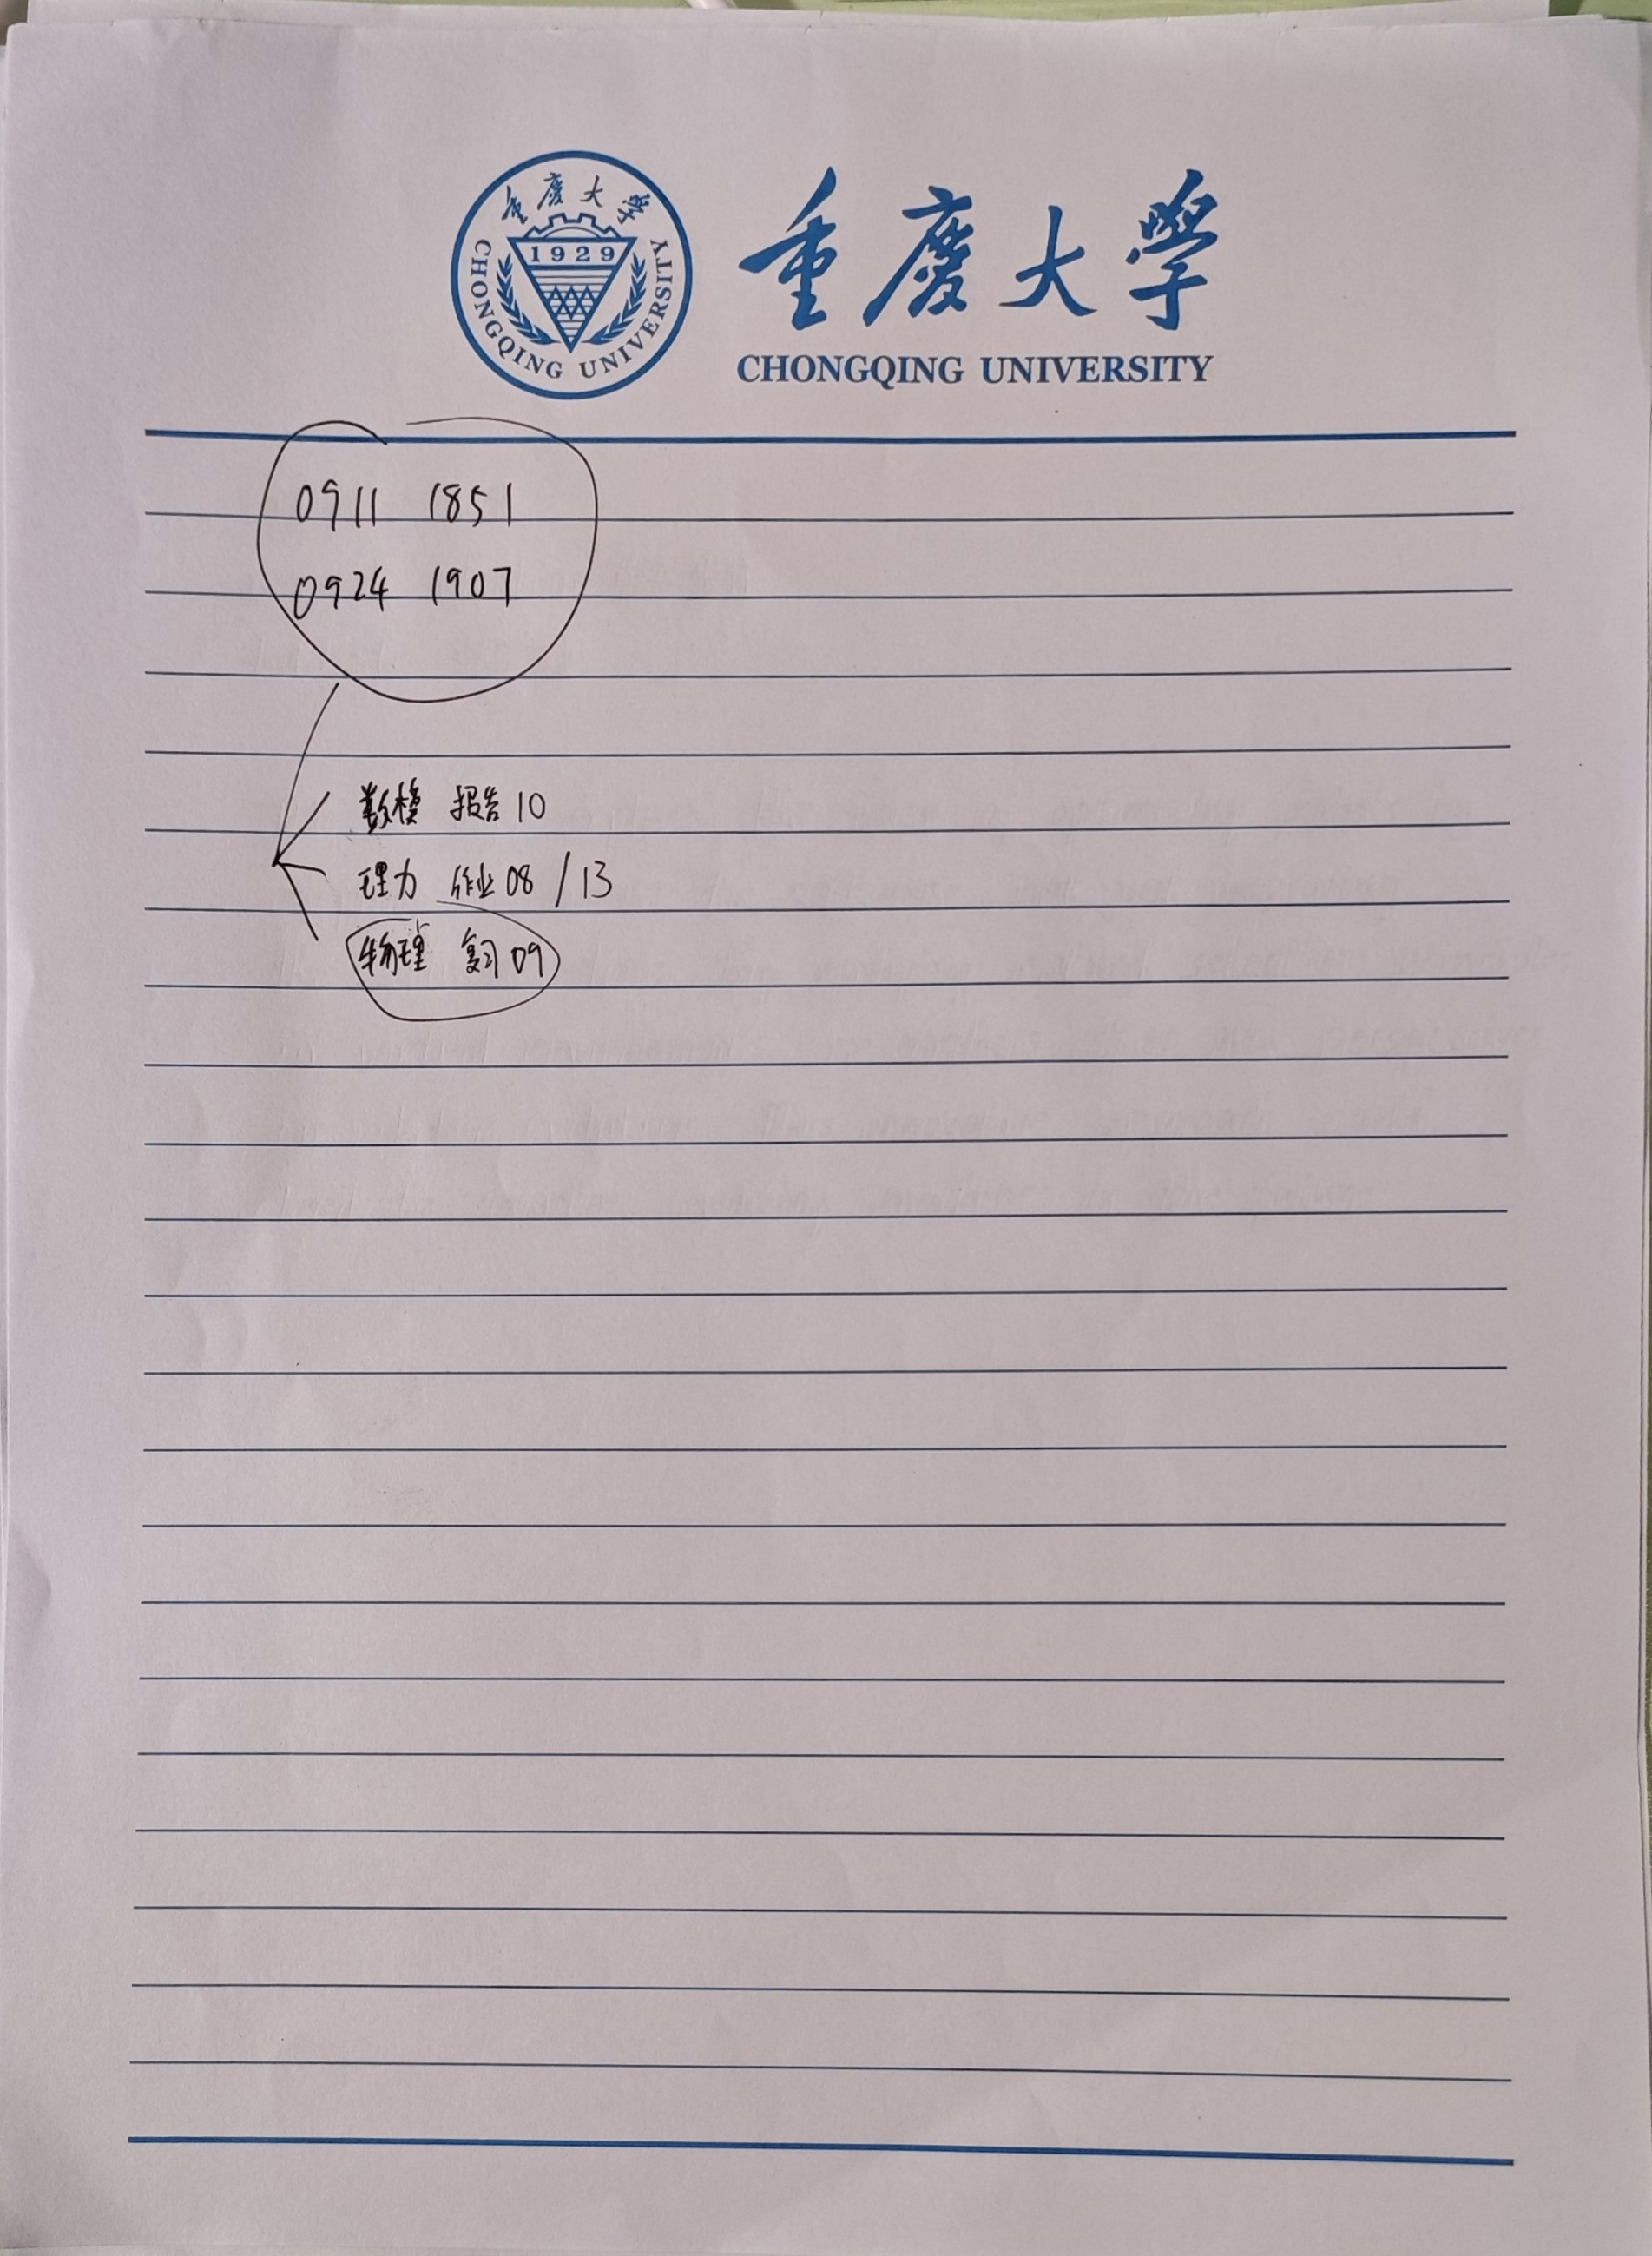 重慶大學
1929
CHONGQING UNIVERSITY
重慶大學
CHONGQING UNIVERSITY
0911 1851
0924 1907
数模 报告10
理力 作业08/13
物理 复习09